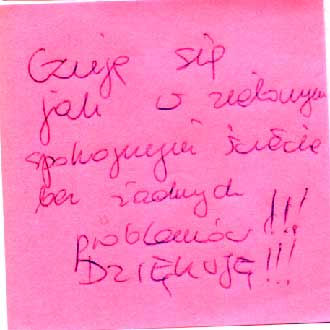 Czuję się
jak w zielonym
spokojnym świecie
bez żadnych
problemów!!!
DZIĘKUJĘ!!!